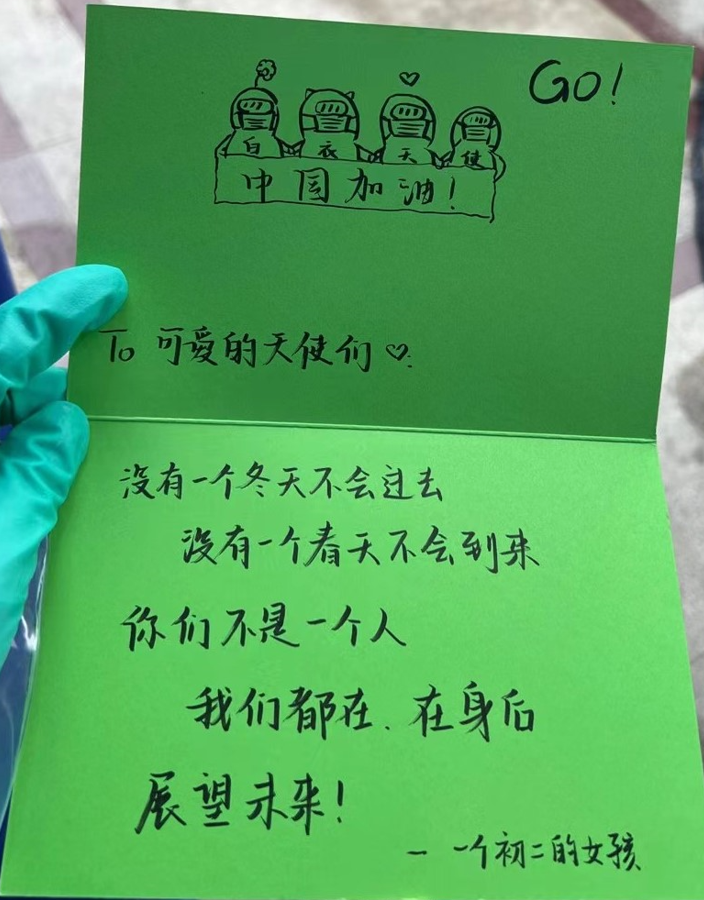 GO!
白衣天使
中国加油!
To 可爱的天使们♡:
没有一个冬天不会过去
没有一个春天不会到来
你们不是一个人
我们都在.在身后
展望未来!
— 一个初二的女孩